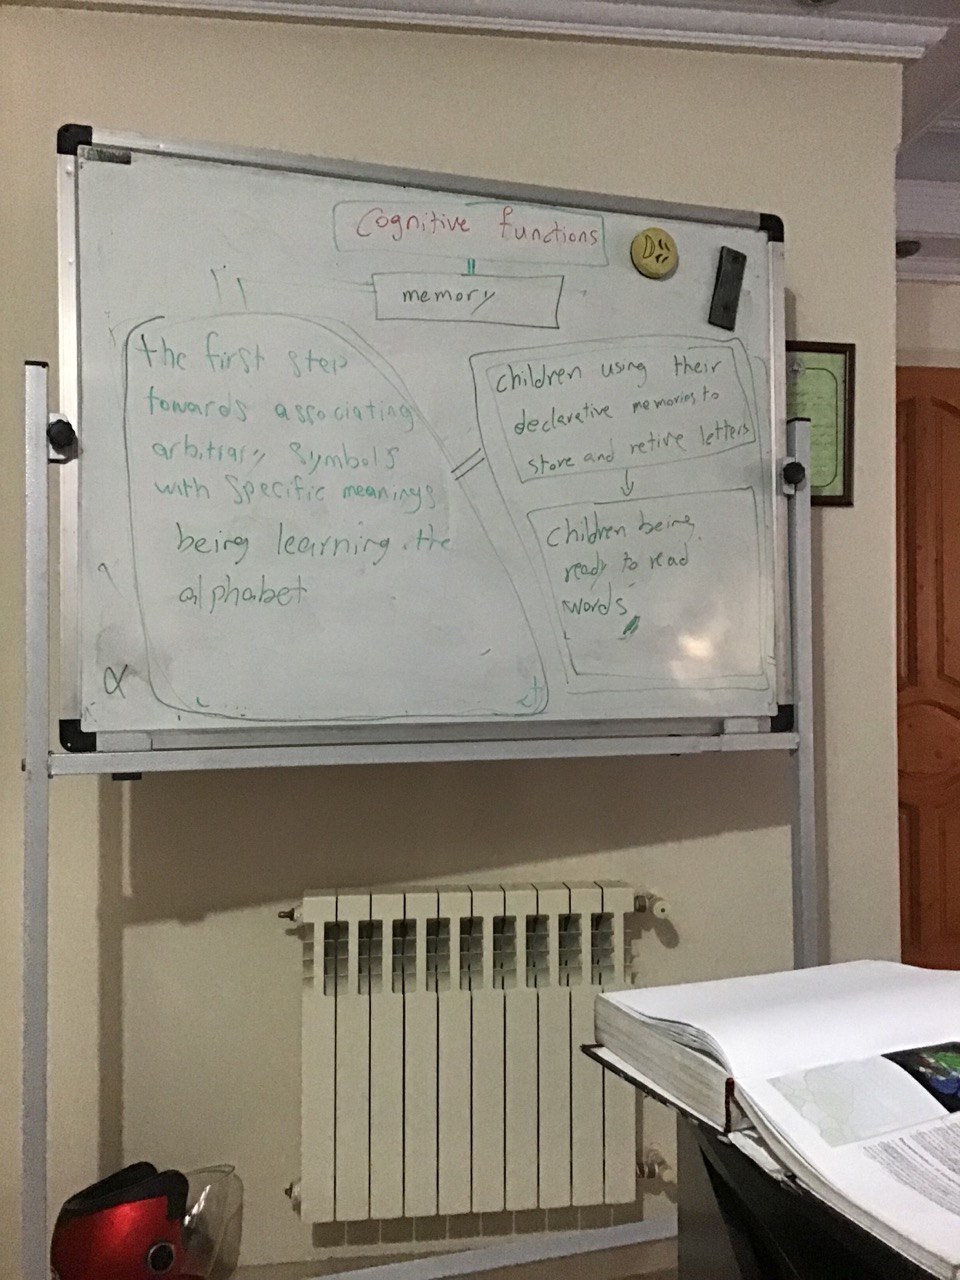 Cognitive functions
memory
the first step
towards associating
arbitrary symbols
with specific meanings
being learning the
alphabet
children using their
declarative memories to
store and retive letters
children being
ready to read
words
α